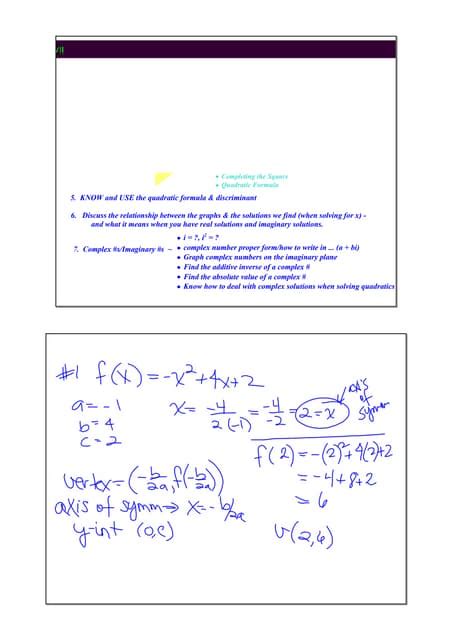 VII
• Completing the Square
• Quadratic Formula
5. KNOW and USE the quadratic formula & discriminant
6. Discuss the relationship between the graphs & the solutions we find (when solving for x) -
and what it means when you have real solutions and imaginary solutions.
• i = ?, i² = ?
7. Complex #s/Imaginary #s ~ • complex number proper form/how to write in ... (a + bi)
• Graph complex numbers on the imaginary plane
• Find the additive inverse of a complex #
• Find the absolute value of a complex #
• Know how to deal with complex solutions when solving quadratics
#1 f(x) = -x²+4x+2
a = -1
b = 4
c = 2
x = -4/2(-1) = -4/-2 = 2 = x
axis
of
symm
f(2) = -(2)²+4(2)+2
= -4+8+2
= 6
V(2,6)
vertex = (-b/2a, f(-b/2a))
axis of symm ⇒ x = -b/2a
y-int (0,c)